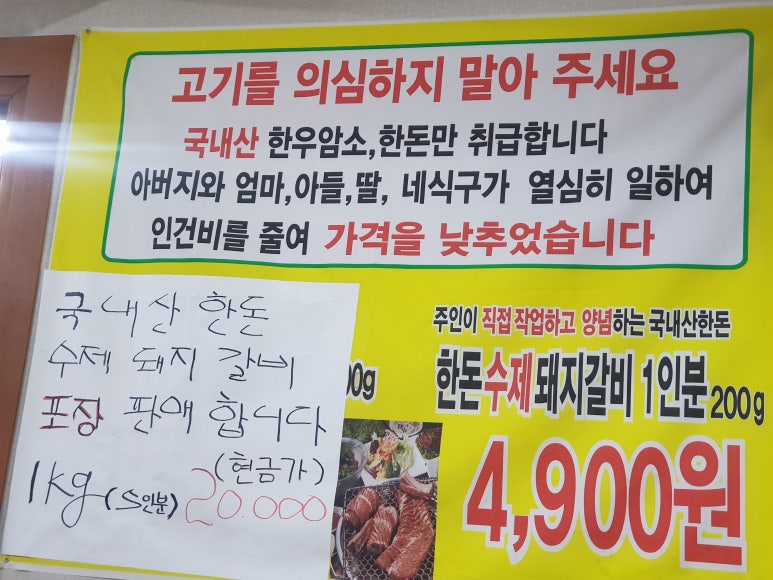 고기를 의심하지 말아 주세요
국내산 한우암소,한돈만 취급합니다
아버지와 엄마,아들,딸, 네식구가 열심히 일하여
인건비를 줄여 가격을 낮추었습니다
국내산 한돈
수제 돼지 갈비
포장 판매 합니다
(현금가)
1kg (5인분) 20.000
00g
주인이 직접 작업하고 양념하는 국내산한돈
한돈수제돼지갈비 1인분 200g
4,900원